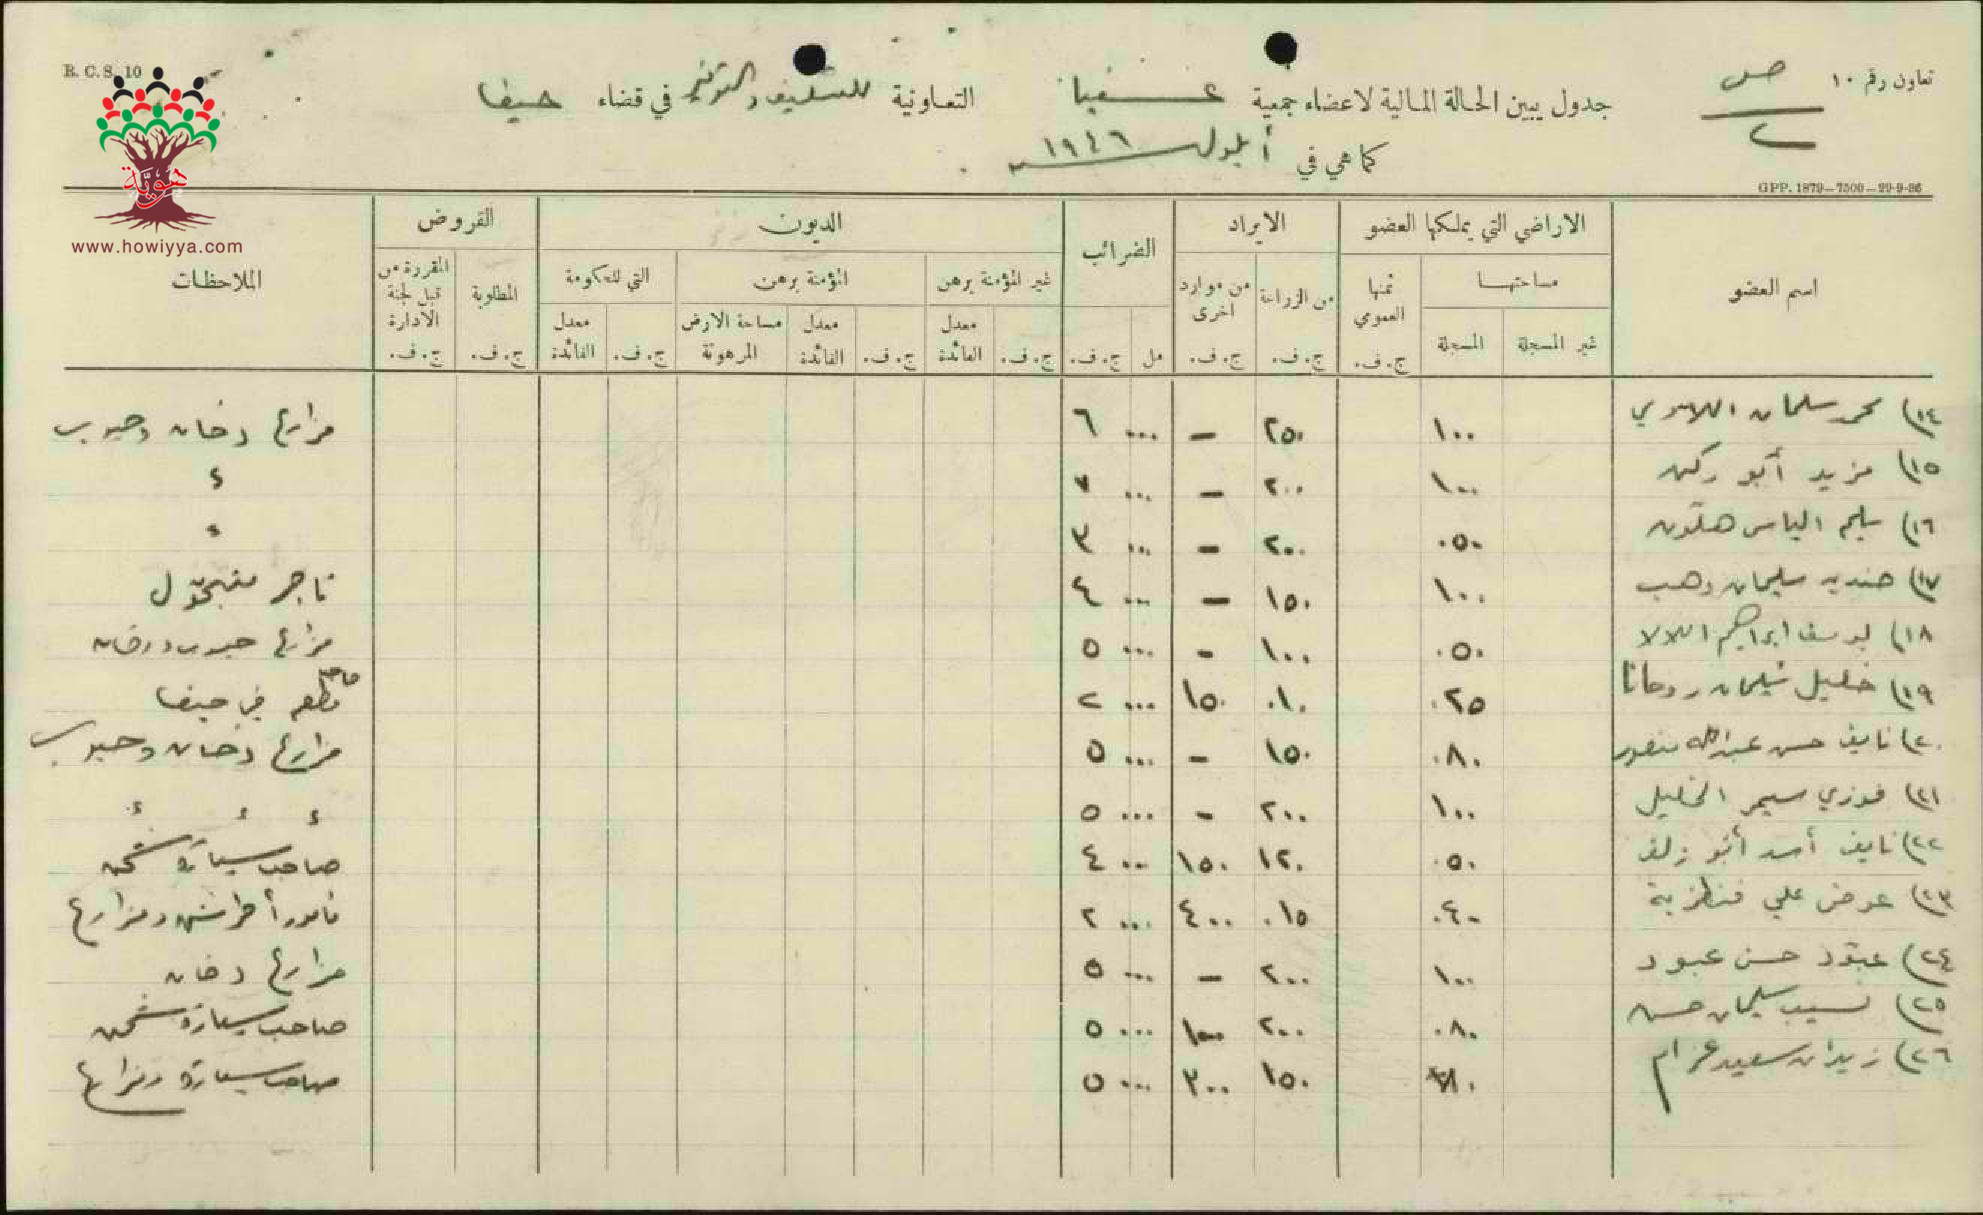 B. C. S. 10
تعاون رقم ١٠
ص ٢
جدول يبين الحالة المالية لاعضاء جمعية عسفيا التعاونية للتسليف والتوفير في قضاء حيفا
كما هي في أيلول ١٩٤٦
GPP. 1879—7500—29-9-36
www.howiyya.com
هوية
اسم العضو الاراضي التي يملكها العضو الايراد الضرائب الديون القروض الملاحظات
مساحتها ثمنها العمومي من الزراعة من موارد اخرى غير المؤمنة برهن المؤمنة برهن التي للحكومة المطلوبة المقررة من قبل لجنة الادارة
غير المسجلة المسجلة ج.ف. ج.ف. ج.ف. مل ج.ف. ج.ف. معدل الفائدة ج.ف. معدل الفائدة مساحة الارض المرهونة ج.ف. معدل الفائدة ج.ف. ج.ف.
١٤) محمد سلمان ١٠٠ ٢٥٠ — ... ٦ مزارع دخان وحبوب
١٥) مزيد أبو ركن ١٠٠ ٢٠٠ — ... ٧ ٤
١٦) سليم الياس هلون ٠٥٠ ٢٠٠ — ... ٣ ٤
١٧) سليمان وهب ١٠٠ ١٥٠ — ... ٤ تاجر متجول
١٨) يوسف ابراهيم ٠٥٠ ١٠٠ - ... ٥ مزارع حبوب ودخان
١٩) خليل سليمان روحانا ٠٢٥ ٠١٠ ١٥٠ ... ٢ مطعم في حيفا
٢٠) نايف حسن عبدالله منصور ٠٨٠ ١٥٠ - ... ٥ مزارع دخان وحبوب
٢١) فوزي سمير الخليل ١٠٠ ٢٠٠ - ... ٥ ٤ ٤ ٤
٢٢) نايف أسعد أبو زلف ٠٥٠ ١٢٠ ١٥٠ ... ٤ صاحب سيارة شحن
٢٣) عوض علي ٠٤٠ ٠١٥ ٤٠٠ ... ٢ مأمور أحراش ومزارع
٢٤) عبود حسن عبود ١٠٠ ٢٠٠ — ... ٥ مزارع دخان
٢٥) نسيب سليمان حسن ٠٨٠ ٢٠٠ ١٠٠ ... ٥ صاحب سيارة شحن
٢٦) زيدان سعيد عزام ١٥٠ ٢٠٠ ... ٥ صاحب سيارة ومزارع